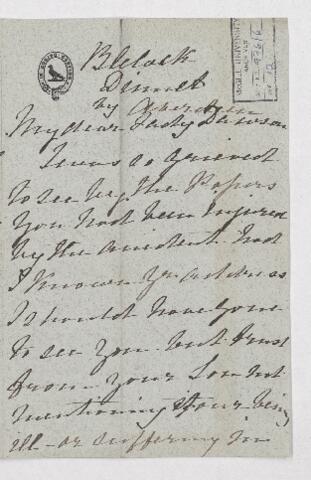 Blelack
Dinnet
by Aberdeen
My dear Lady Dawson
I was so grieved
to see by the Papers
You had been injured
by the accident had
I known yr address
I should have gone
to see you but trust
from your Son not
mentioning your being
ill – or suffering in